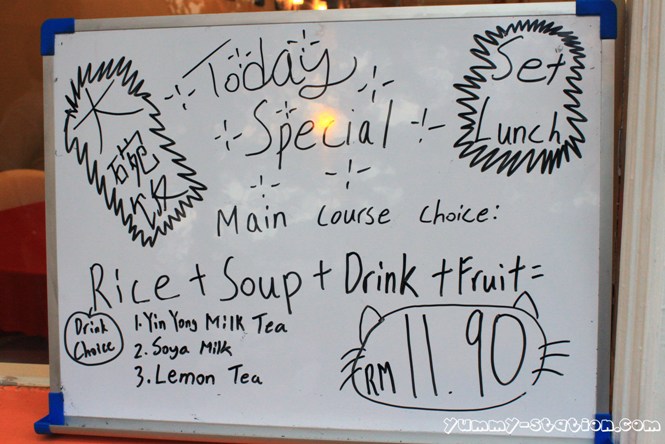 Today
Special
大碗饭
Set
Lunch
Main course choice:
Rice + Soup + Drink + Fruit =
Drink
Choice
1. Yin Yong Milk Tea
2. Soya Milk
3. Lemon Tea
RM 11.90
yummy-station.com